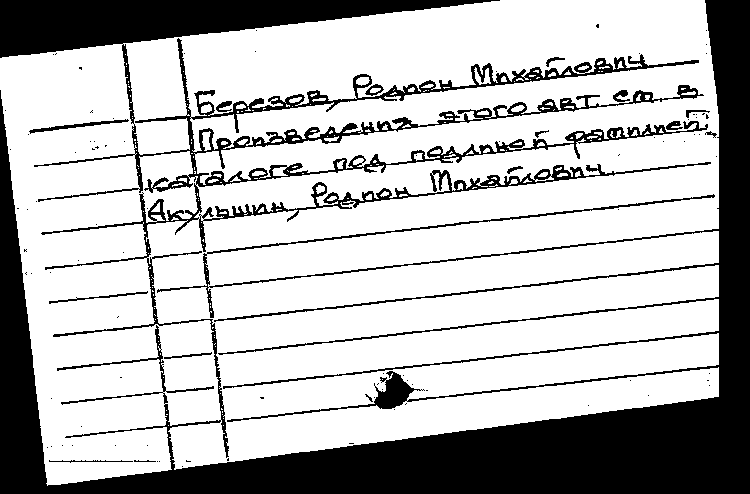 Березов, Родион Михайлович
Произведения этого авт. см. в
каталоге под подлиной фамилией:
Акульшин, Родион Михайлович.